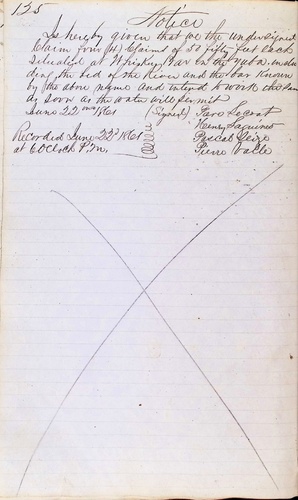 125
Notice
Is hereby given that we the undersigned
Claim four (4) Claims of 50 fifty feet each
Situated at Whiskey Bar on the Yuba, inclu
ding the bed of the River and the bar known
by the above name and intend to work the same
as soon as the water will permit
June 22nd 1861 (Signed)
Henry
Recorded June 22d 1861 Pascal
at 6 OClock P.M. Pierre Valle